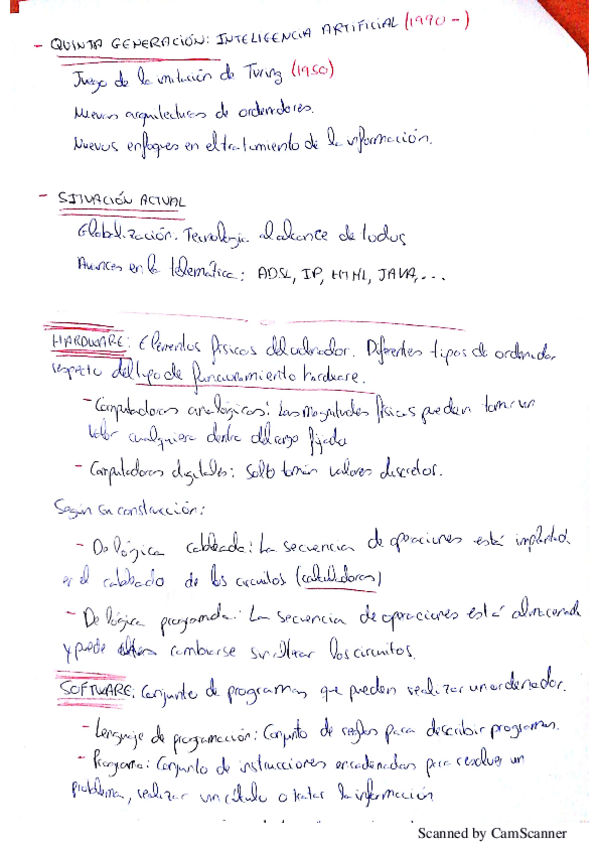 - QUINTA GENERACIÓN: INTELIGENCIA ARTIFICIAL (1990 -)
Juego de la imitación de Turing (1950)
Nuevas arquitecturas de ordenadores.
Nuevos enfoques en el tratamiento de la información.
- SITUACIÓN ACTUAL
Globalización. Tecnología al alcance de todos
Avances en la telemática: ADSL, IP, HTML, JAVA, ...
HARDWARE: Elementos físicos del ordenador. Diferentes tipos de ordenador
respecto del tipo de funcionamiento hardware.
- Computadoras analógicas: Las magnitudes físicas pueden tomar un
valor cualquiera dentro del rango fijado
- Computadoras digitales: Solo toman valores discretos.
Según su construcción:
- De lógica cableada: La secuencia de operaciones está implantada
en el cableado de los circuitos (calculadoras)
- De lógica programada: La secuencia de operaciones está almacenada
y puede cambiarse sin alterar los circuitos.
SOFTWARE: Conjunto de programas que pueden realizar un ordenador.
- Lenguaje de programación: Conjunto de reglas para describir programas.
- Programa: Conjunto de instrucciones encadenadas para resolver un
problema, realizar un cálculo o tratar la información
Scanned by CamScanner